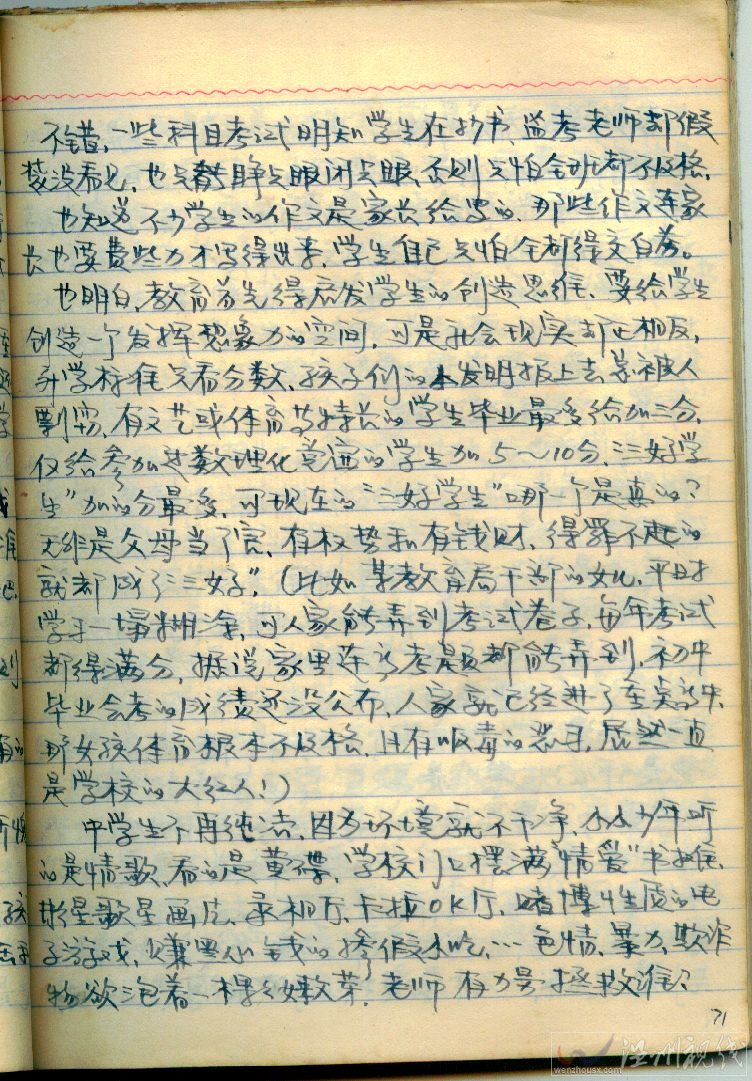 不错,一些科目考试明知学生在抄书,监考老师都假
装没看见,也只有睁只眼闭只眼,否则只怕全班都不及格。
也知道不少学生的作文是家长给写的,那些作文连家
长也要费些力才写得出来,学生自己只怕全都得交白卷。
也明白,教育首先得启发学生的创造思维,要给学生
创造一个发挥想象力的空间,可是社会现实却正相反,
升学标准只看分数,孩子们的小发明报上去,常被人
剽窃,有文艺或体育等特长的学生毕业最多给加三分,
仅给参加过数理化竞赛的学生加5~10分,“三好学
生”加的分最多,可现在的“三好学生”哪一个是真的?
无非是父母当了官,有权势和有钱财,得罪不起的
就都成了“三好”。(比如某教育局干部的女儿,平时
学子一塌糊涂,可人家能弄到考试卷子,每年考试
都得满分,据说家里连高考题都能弄到,初中
毕业会考的成绩还没公布,人家就已经进了重点高中,
那女孩体育根本不及格,且有吸毒的恶习,居然一直
是学校的大红人!)
中学生不再纯洁,因为环境就不干净,小小少年听
的是情歌,看的是黄碟,学校门口摆满“情爱”书摊,
影星歌星画片、录相厅、卡拉OK厅、赌博性质的电
子游戏,赚黑心钱的掺假小吃,…色情、暴力、欺诈
物欲泡着一棵棵嫩菜,老师有力量拯救谁?
71
温州视线
wenzhousx.com